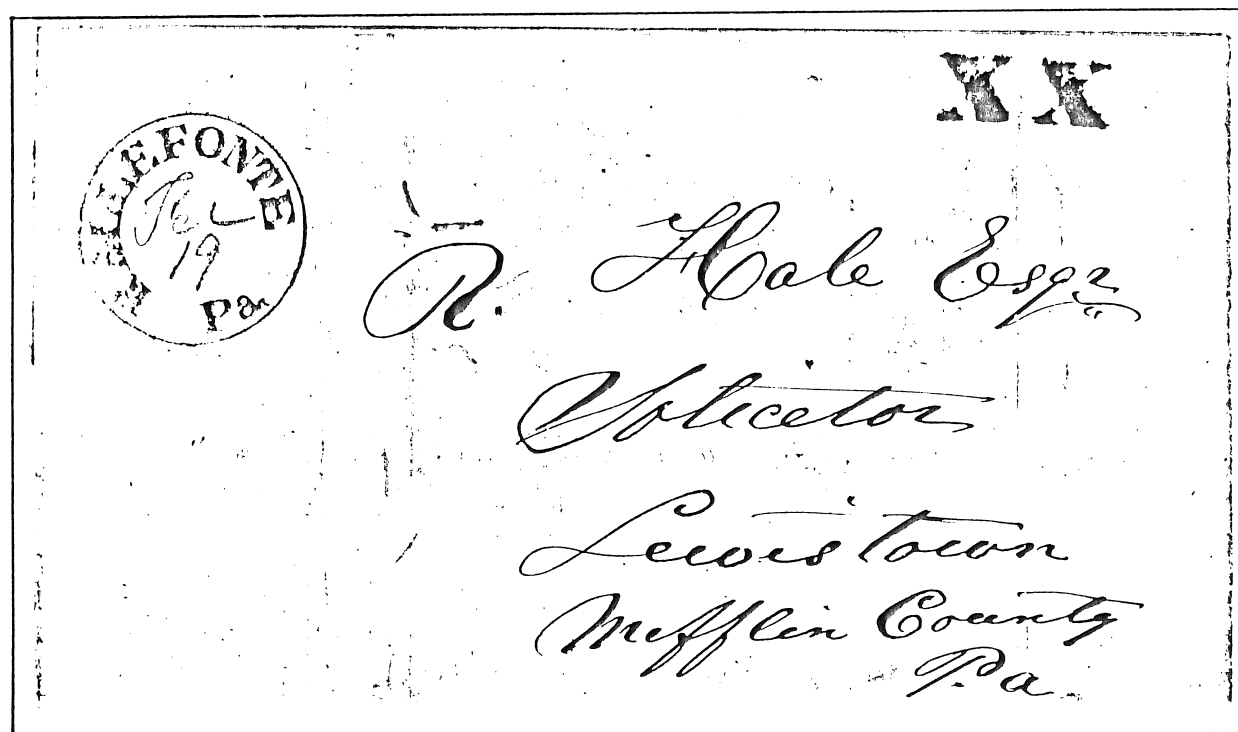 XX
BELLEFONTE
Feb
19
Pa
R. Hale Esqr
Solicitor
Lewistown
Mifflin County
Pa